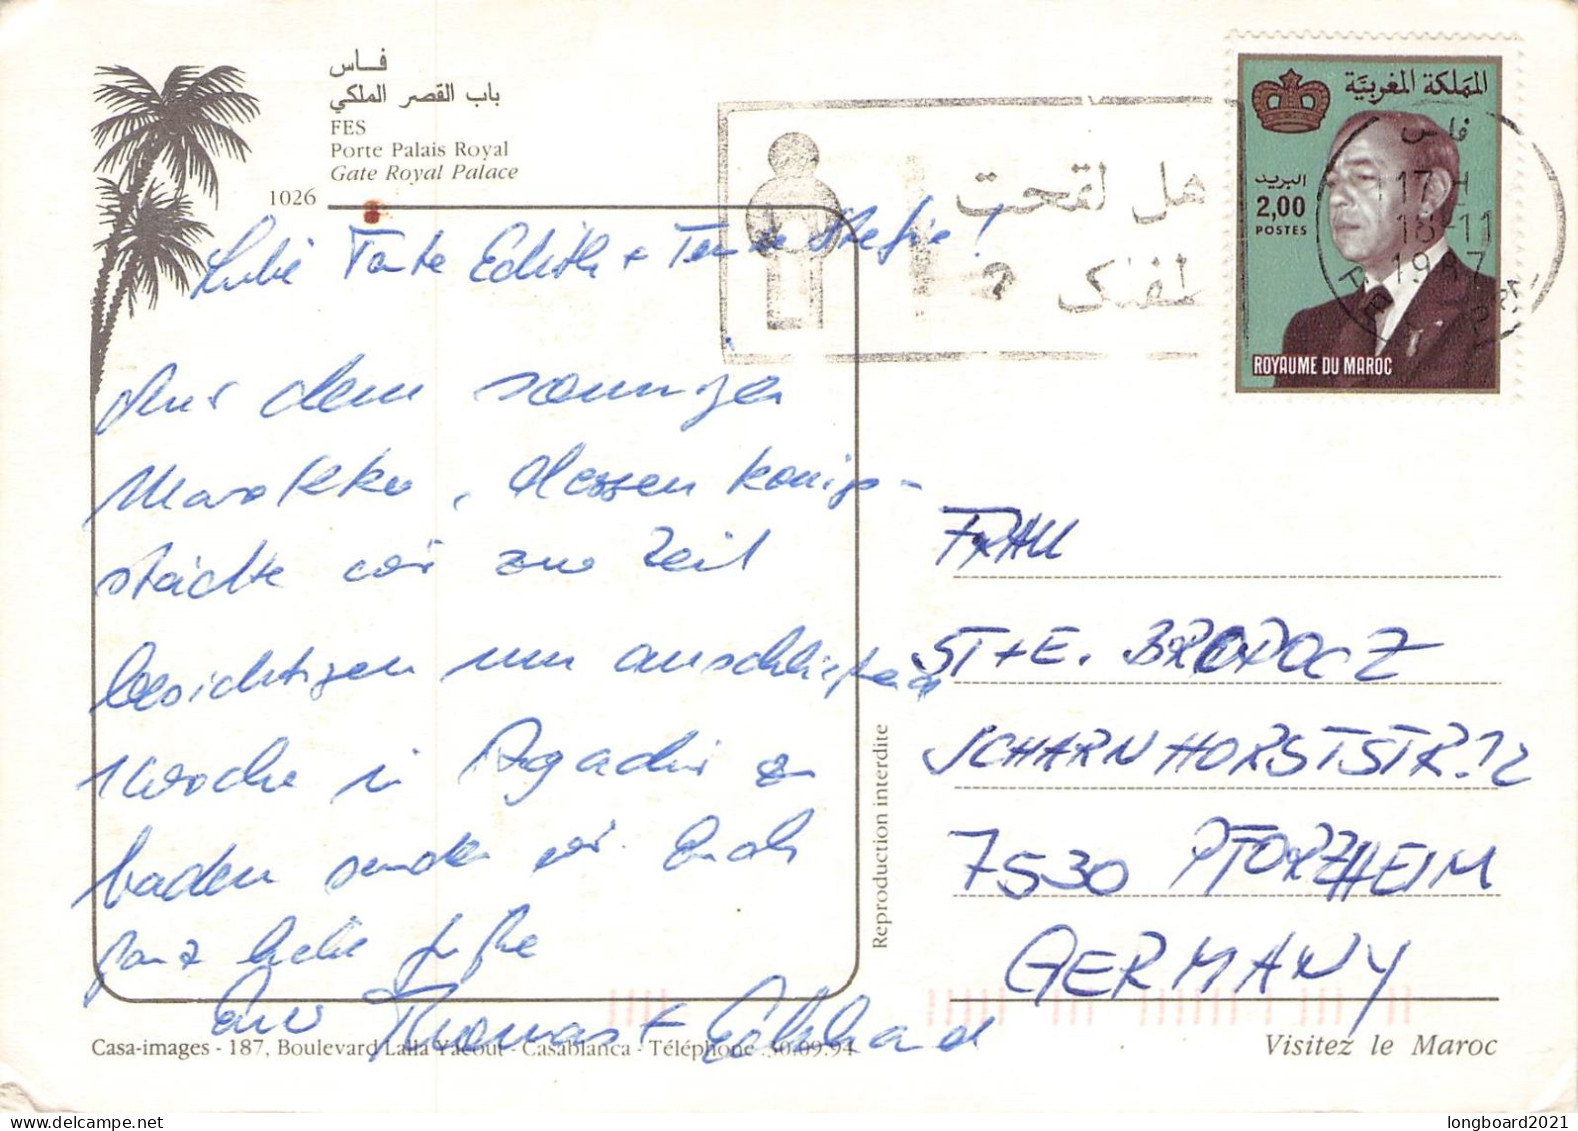 فاس
باب القصر الملكي
FES
Porte Palais Royal
Gate Royal Palace
1026
Liebe Tante Edith + Tante Stefie!
Aus dem sonnigen
Marokko, dessen Königs-
städte wir zur Zeit
besichtigen um anschließend
1 Woche in Agadir zu
baden senden wir Euch
ganz liebe Grüße
Eure Thomas + Eckhard
Casa-images - 187, Boulevard Lalla Yacout - Casablanca - Téléphone 30.09.94
Reproduction interdite
هل لقحت
طفلك ؟
المملكة المغربية
البريد
2,00
POSTES
ROYAUME DU MAROC
فاس
17 H
18-11
1987
FRAU
ST+E. BRODOCZ
SCHARNHORSTSTR.12
7530 PFORZHEIM
GERMANY
Visitez le Maroc
longboard2021